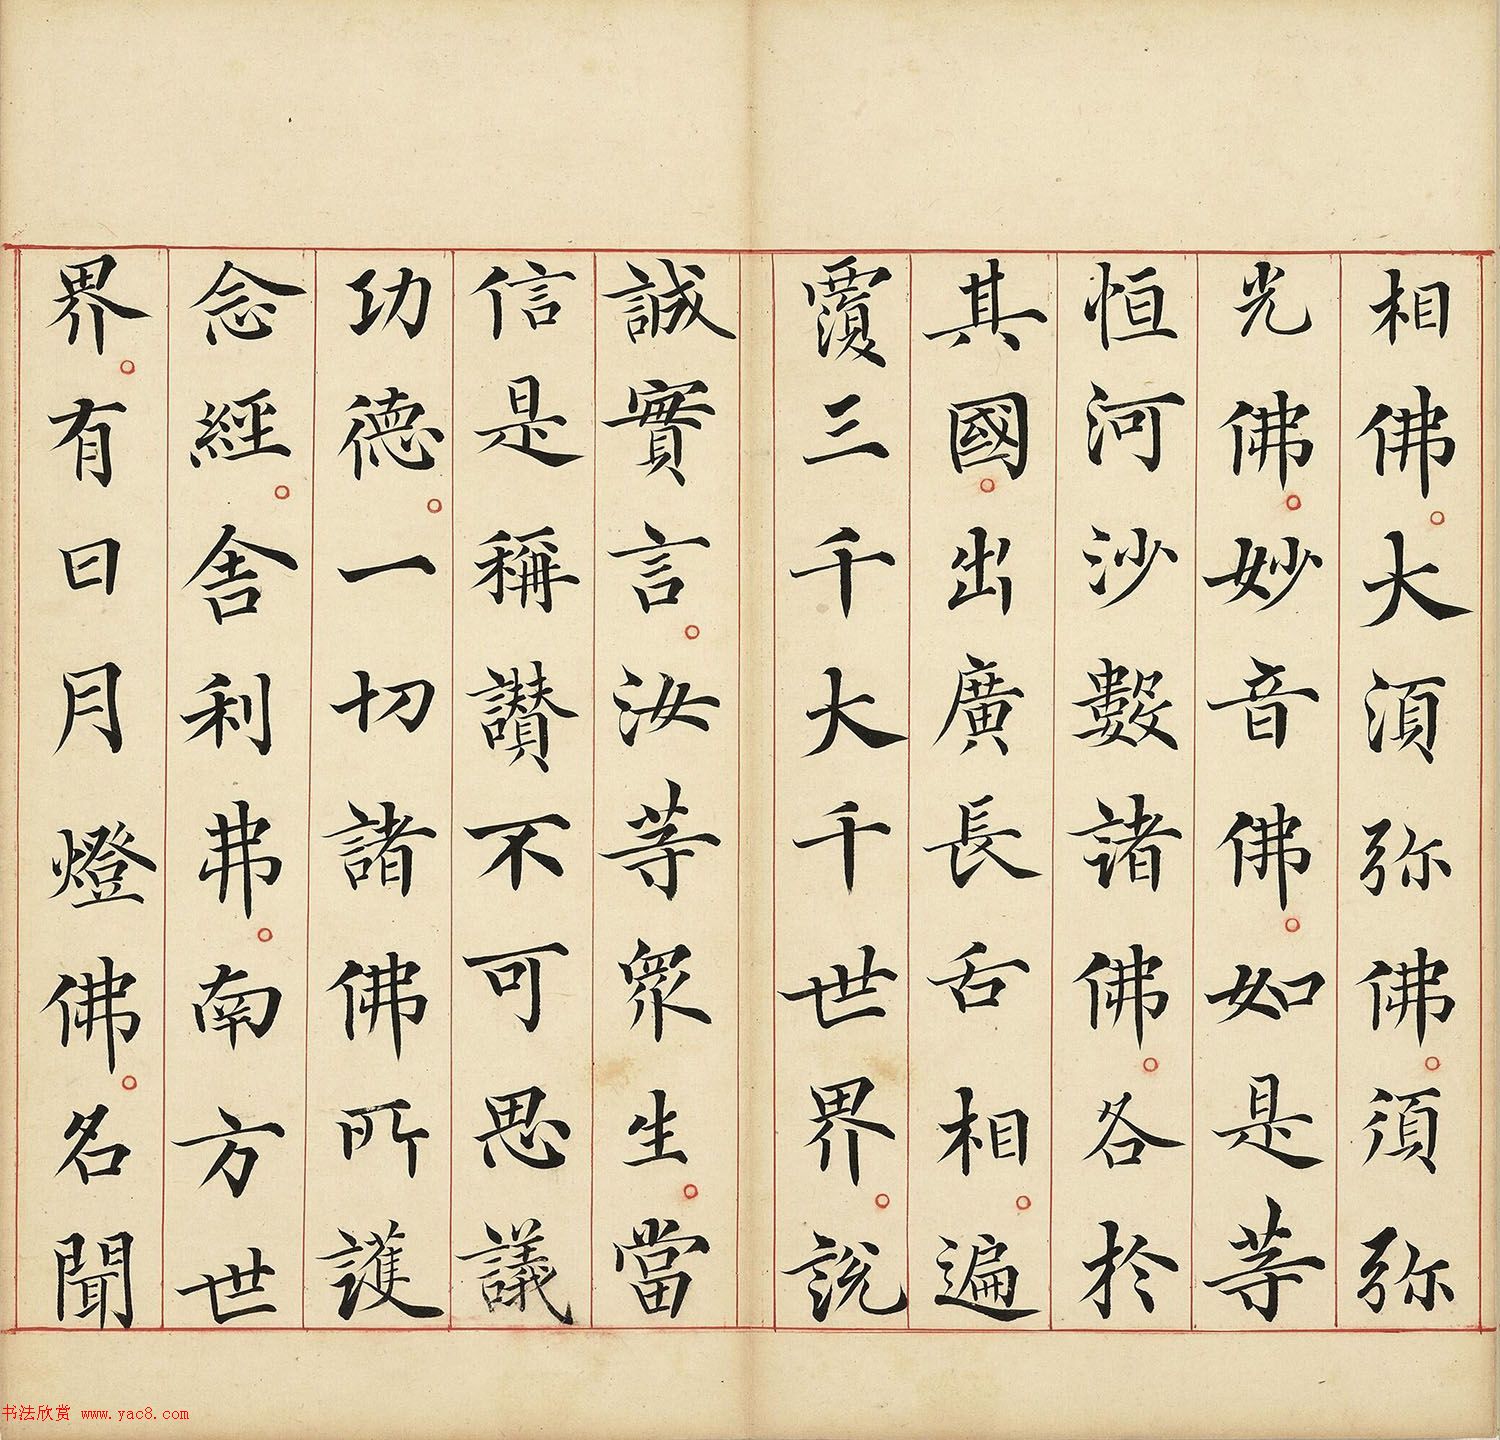 相佛。大須弥佛。須弥
光佛。妙音佛。如是等
恒河沙數諸佛。各於
其國。出廣長舌相。遍
覆三千大千世界。說
誠實言。汝等眾生。當
信是稱讚不可思議
功德。一切諸佛所護
念經。舍利弗。南方世
界。有日月燈佛。名聞
书法欣赏 www.yac8.com